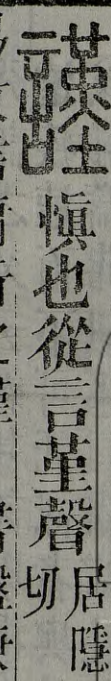 謹愼也從言堇聲居隱切